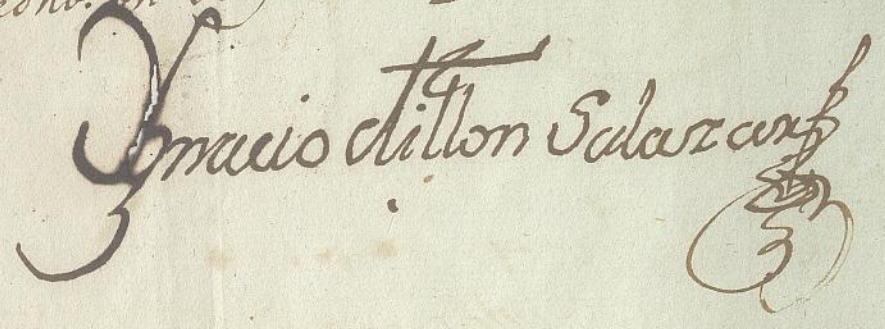 Ygnacio Aillon Salazar